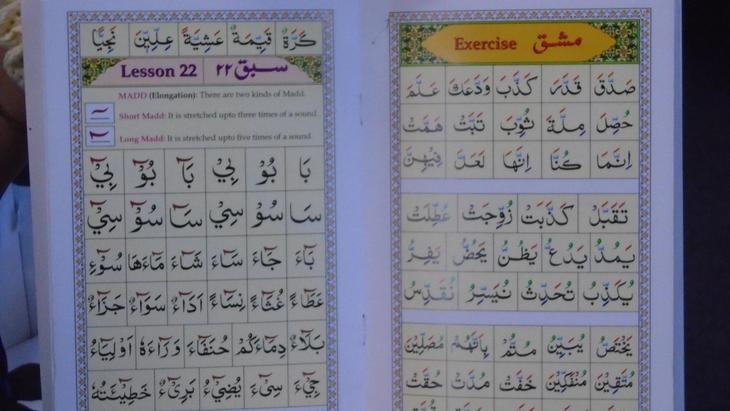 كَرَّةٌ قَيِّمَةٌ عَشِيَّةً عِلِّيِّيْنَ نَجِيًّا
Lesson 22 سبق ۲۲
MADD (Elongation): There are two kinds of Madd.
Short Madd: It is stretched upto three times of a sound.
Long Madd: It is stretched upto five times of a sound.
بَا بُوْ بِيْ بَآ بُوْٓ بِيْٓ
سَا سُوْ سِيْ سَآ سُوْٓ سِيْٓ
بَآءَ جَآءَ سَآءَ شَآءَ مَآءَهَا سُوْٓءِ
عَطَآءً غُثَآءً نِسَآءً اَدَآءٌ سَوَآءٌ جَزَآءً
بَلَآءٌ دِمَآءَكُمْ حُنَفَآءَ وَرَآءَهٗ اَوْلِيَآءُ
جِيْٓءَ سِيْٓءَ يُضِيْٓءُ بَرِيْٓءٌ خَطِيْٓئَتُهٗ
Exercise مشق
صَدَّقَ قَدَّرَ كَذَّبَ وَدَّعَكَ عَلَّمَ
حُصِّلَ مِلَّةَ ثُوِّبَ تَبَّتْ هَمَّتْ
اِنَّمَا كُنَّا اِنَّهَا لَعَلَّ فِيْهِنَّ
تَقَبَّلَ كَذَّبَتْ زُوِّجَتْ عُطِّلَتْ
يَمُدُّ يَدُعُّ يَظُنُّ يَحُضُّ يَفِرُّ
يُكَذِّبُ تُحَدِّثُ نُيَسِّرُ نُقَدِّسُ
يَخْتَصُّ يُبَيِّنُ مُتِمُّ بِاَنَّهُمْ مُصَلِّيْنَ
مُتَّقِيْنَ مُنْفَكِّيْنَ خَفَّتْ مُدَّتْ حُقَّتْ